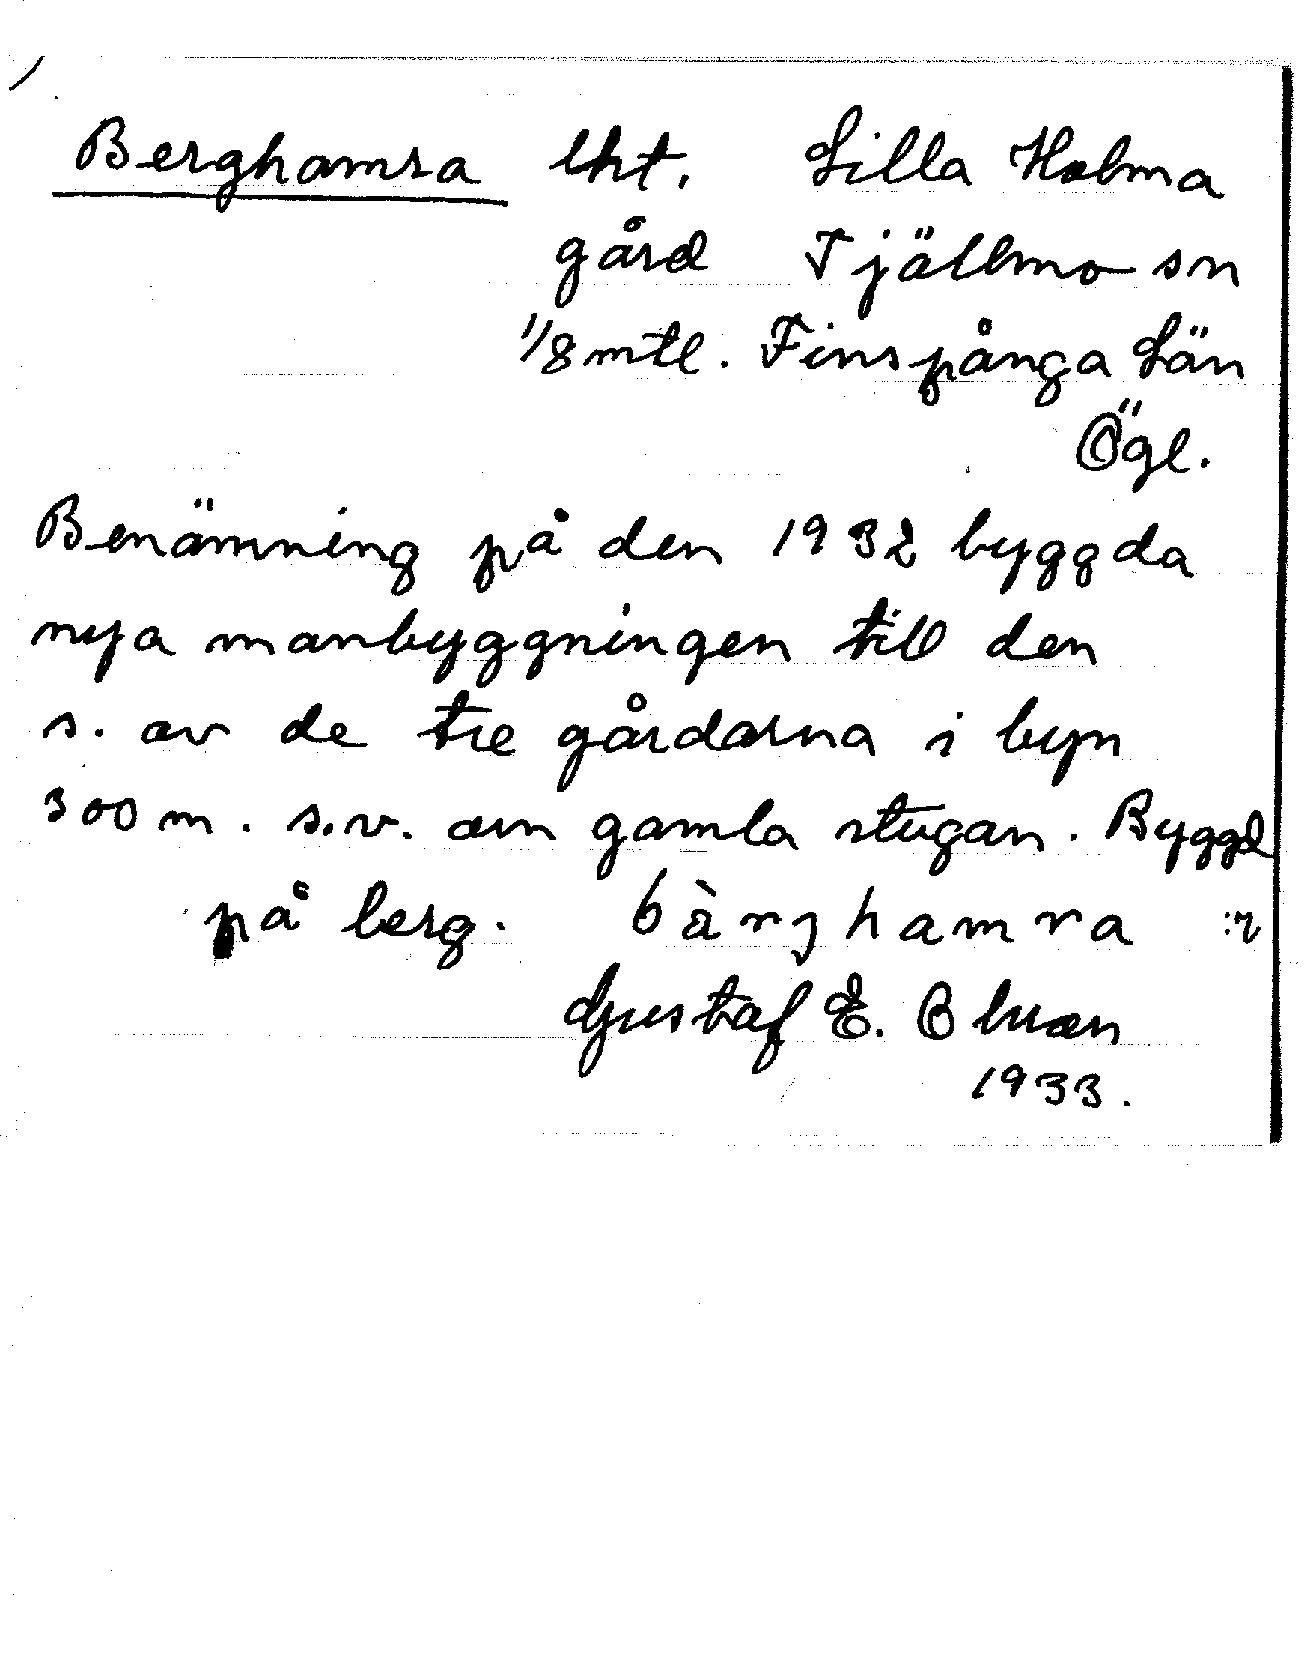 Berghamra lht. Lilla Holma
gård Tjällmo sn
1/8 mtl. Finspånga Län
Ögl.
Benämning på den 1932 byggda
nya manbyggningen till den
s. av de tre gårdarna i byn
300 m. s.v. om gamla stugan. Byggd
på berg. bàrjhamra :r
Gustaf E. Bluan
1933.